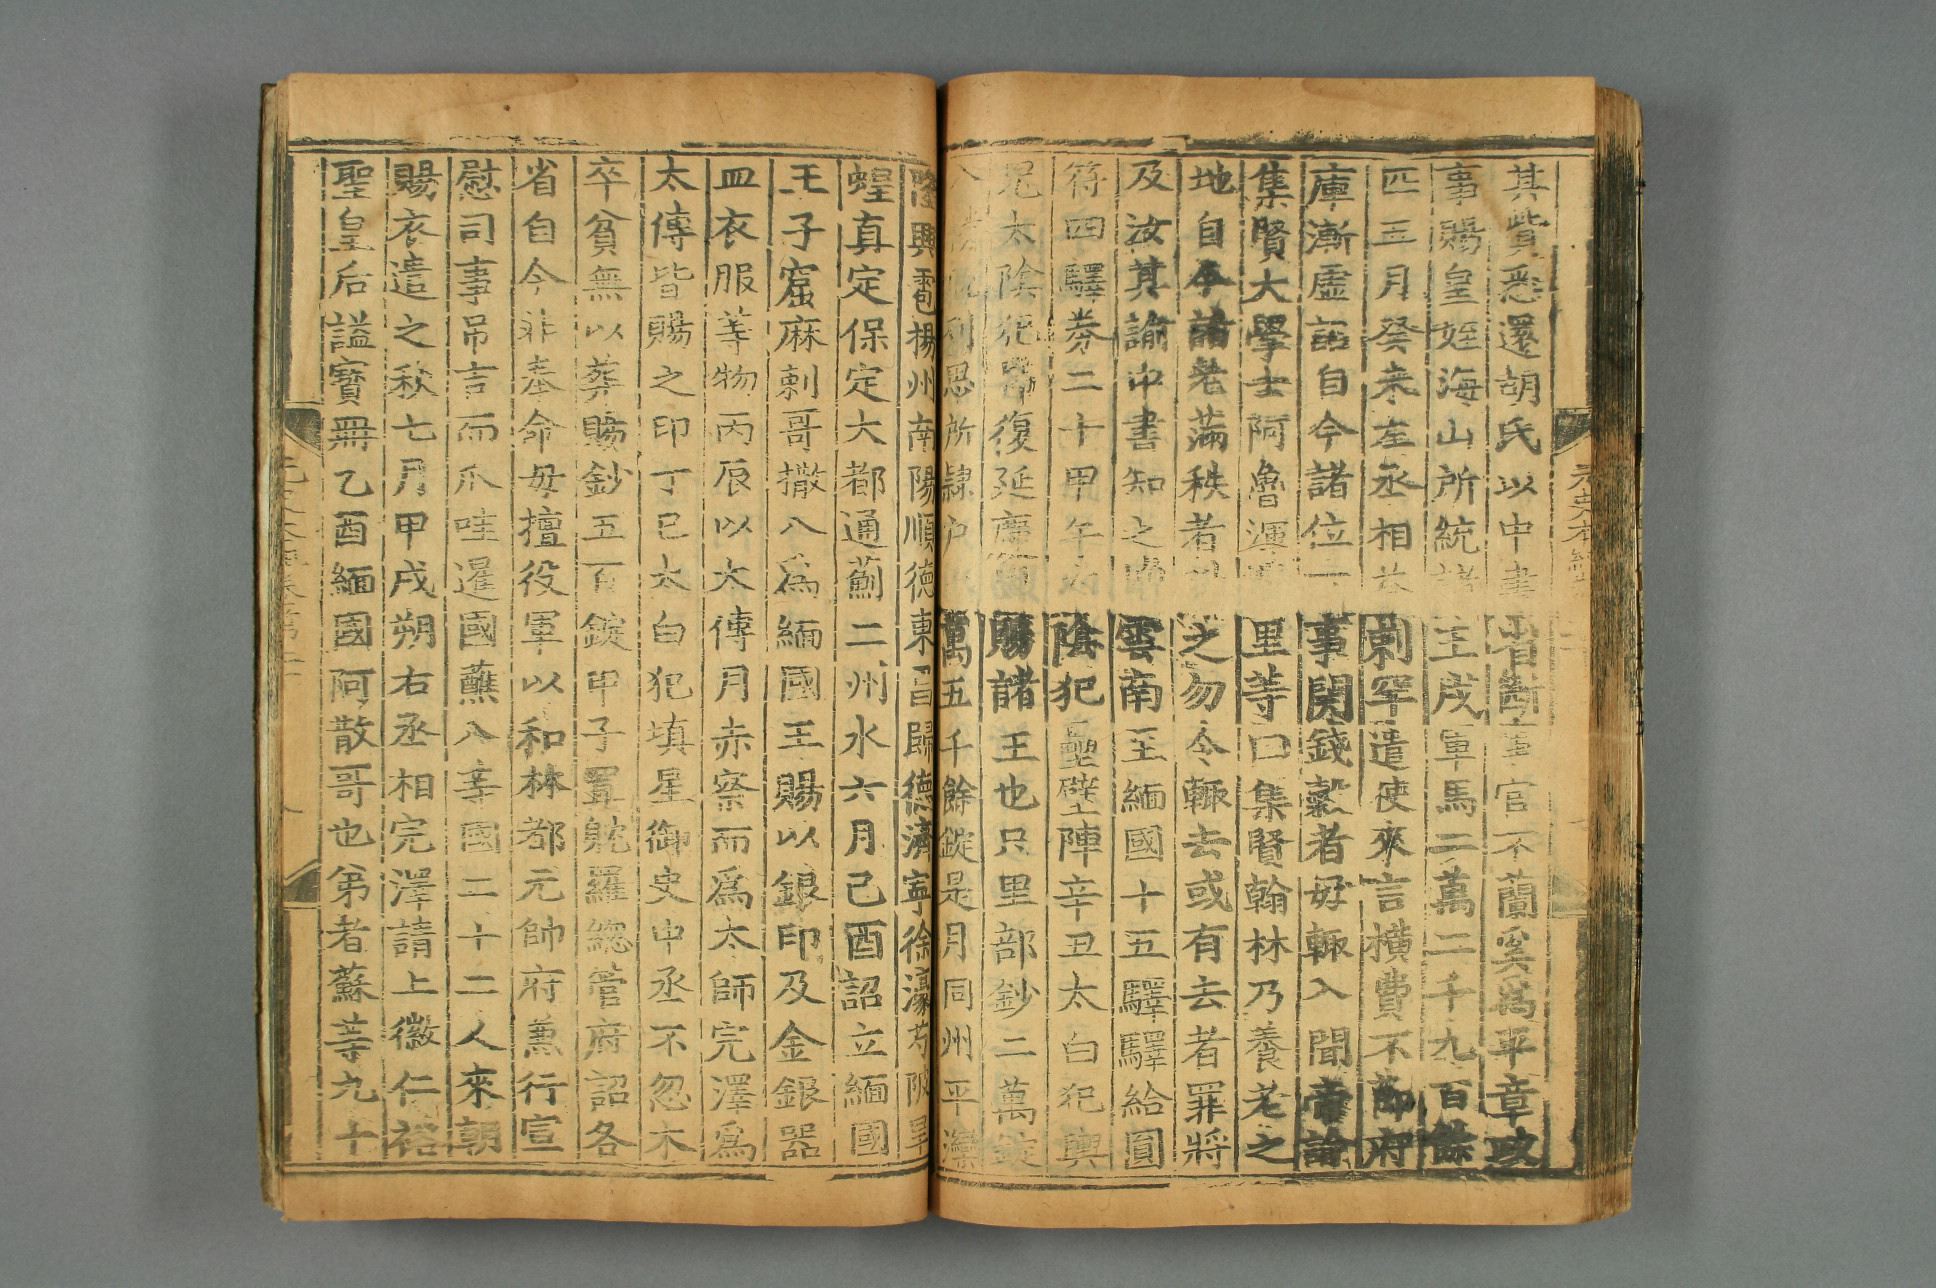 其貲悉還胡氏以中書省斷事官不蘭奚爲平章政
事賜皇姪海山所統諸王戍軍馬二萬二千九百餘
匹五月癸未左丞相荅剌罕遣使來言橫費不節府
庫漸虛詔自今諸位下事関錢糓者毋輙入聞帝諭
集賢大學士阿魯渾撒里等曰集賢翰林乃養老之
地自今諸老滿秩者陞之勿令輙去或有去者罪將
及汝其諭中書知之增雲南至緬國十五驛驛給圓
符四驛券二十甲午太陰犯壘壁陣辛丑太白犯輿
鬼太陰犯昴復延慶司賜諸王也只里部鈔二萬錠
八憐脫列思所隷戶六萬五千餘錠是月同州平灤
隆興雹揚州南陽順德東昌歸德濟寧徐濠芍陂旱
蝗真定保定大都通薊二州水六月己酉詔立緬國
王子窟麻剌哥撒八爲緬國王賜以銀印及金銀器
皿衣服等物丙辰以太傅月赤察而爲太師完澤爲
太傅皆賜之印丁巳太白犯填星御史中丞不忽木
卒貧無以葬賜鈔五百錠甲子置躭羅緫管府詔各
省自今非奉命毋擅役軍以和林都元帥府兼行宣
慰司事吊吉而爪哇暹國蘸八等國二十二人來朝
賜衣遣之秋七月甲戌朔右丞相完澤請上徽仁裕
聖皇后謚寶冊乙酉緬國阿散哥也弟者蘇等九十